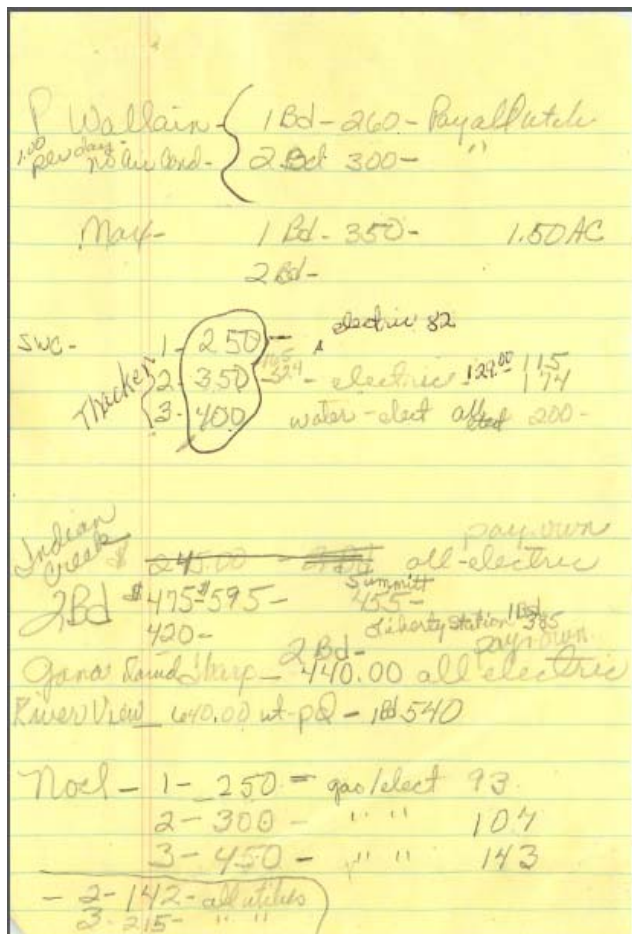 P Wallain - 1 Bd - 260 - Pay all utili
1.00 per day - no air Cond - 2 Bd 300 - "
May - 1 Bd - 350 - 1.50 AC
2 Bd -
electric 82
SWC - 1 - 250 -
Thacker 2 - 350 - 324 - electric 129.00 115
174
3 - 400 water - elect 200 -
Indian Creek pay own
$ 245.00 all-electric
2Bd $475 - $595 - Summitt 455 -
420 - Liberty Station 1Bd 385
2 Bd - pay own
440.00 all electric
River View 640.00 wt - pd - 1Bd 540
Noel - 1 - 250 = gas/elect 93
2 - 300 - " " 107
3 - 450 - " " 143
- 2 - 142 - all utilies
3 - 215 - " "